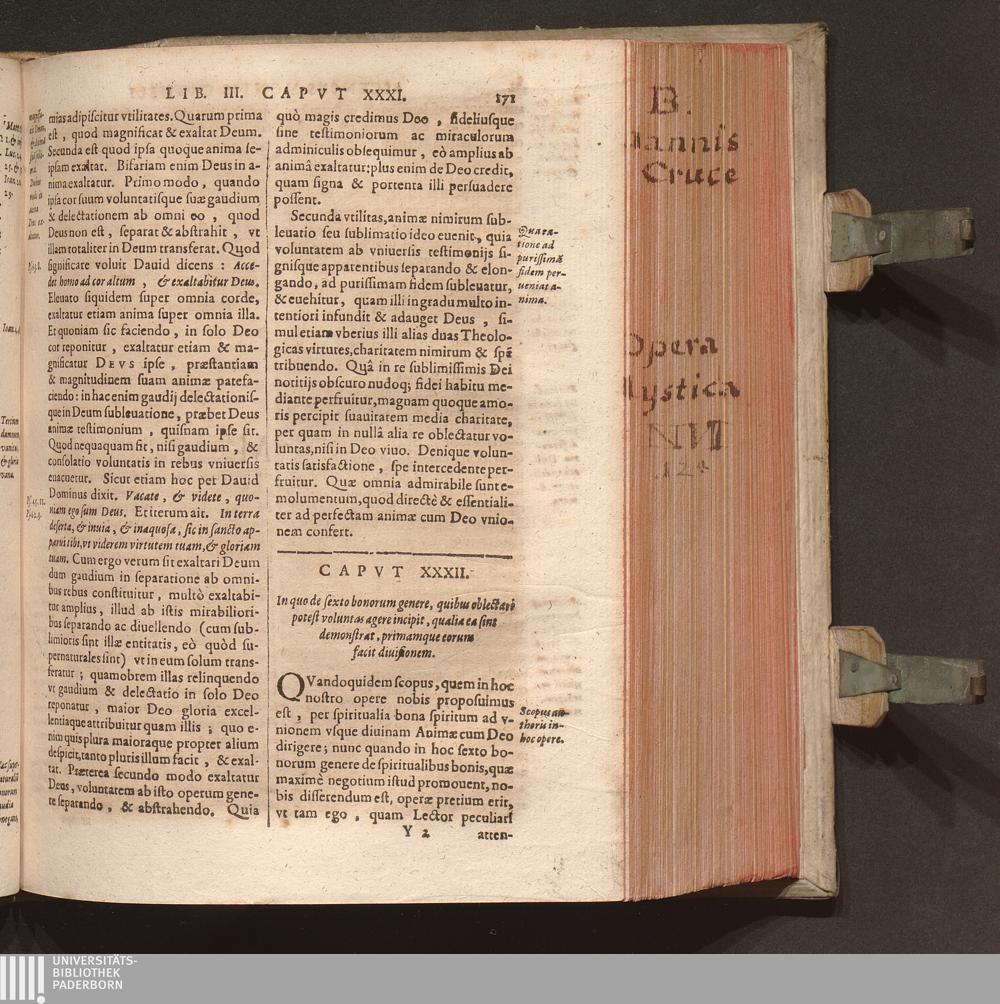 LIB. III. CAPVT XXXI. 171
mias adipiscitur vtilitates. Quarum prima
est, quod magnificat & exaltat Deum.
Secunda est quod ipsa quoque anima se-
ipsam exaltat. Bifariam enim Deus in a-
nima exaltatur. Primo modo, quando
ipsa cor suum voluntatisque suæ gaudium
& delectationem ab omni eo, quod
Deus non est, separat & abstrahit, vt
illam totaliter in Deum transferat. Quod
significare voluit Dauid dicens: Acce-
det homo ad cor altum, & exaltabitur Deus.
Eleuato siquidem super omnia corde,
exaltatur etiam anima super omnia illa.
Et quoniam sic faciendo, in solo Deo
cor reponitur, exaltatur etiam & ma-
gnificatur DEVS ipse, præstantiam
& magnitudinem suam animæ patefa-
ciendo: in hac enim gaudij delectationis-
que in Deum subleuatione, præbet Deus
animæ testimonium, quisnam ipse sit.
Quod nequaquam fit, nisi gaudium, &
consolatio voluntatis in rebus vniuersis
euacuetur. Sicut etiam hoc per Dauid
Dominus dixit. Vacate, & videte, quo-
niam ego sum Deus. Et iterum ait. In terra
deserta, & inuia, & inaquosa, sic in sancto ap-
parui tibi, vt viderem virtutem tuam, & gloriam
tuam. Cum ergo verum sit exaltari Deum
dum gaudium in separatione ab omni-
bus rebus constituitur, multò exaltabi-
tur amplius, illud ab istis mirabiliori-
bus separando ac diuellendo (cum sub-
limioris sint illæ entitatis, eò quòd su-
pernaturales sint) vt in eum solum trans-
feratur; quamobrem illas relinquendo
vt gaudium & delectatio in solo Deo
reponatur, maior Deo gloria excel-
lentiaque attribuitur quam illis; quo e-
nim quis plura maioraque propter alium
despicit, tanto pluris illum facit, & exal-
tat. Præterea secundo modo exaltatur
Deus, voluntatem ab isto operum gene-
re separando, & abstrahendo. Quia
quò magis credimus Deo, fideliusque
sine testimoniorum ac miraculorum
adminiculis obsequimur, eò amplius ab
animâ exaltatur: plus enim de Deo credit,
quam signa & portenta illi persuadere
possent.
Secunda vtilitas, animæ nimirum sub-
leuatio seu sublimatio ideo euenit, quia
voluntatem ab vniuersis testimonijs si-
gnisque apparentibus separando & elon-
gando, ad purissimam fidem subleuatur,
& euehitur, quam illi in gradu multo in-
tentiori infundit & adauget Deus, si-
mul etiam vberius illi alias duas Theolo-
gicas virtutes, charitatem nimirum & spē
tribuendo. Quâ in re sublimissimis Dei
notitijs obscuro nudoq; fidei habitu me-
diante perfruitur, magnam quoque amo-
ris percipit suauitatem media charitate,
per quam in nullâ alia re oblectatur vo-
luntas, nisi in Deo viuo. Denique volun-
tatis satisfactione, spe intercedente per-
fruitur. Quæ omnia admirabile sunt e-
molumentum, quod directè & essentiali-
ter ad perfectam animæ cum Deo vnio-
nem confert.
Qua ra-
tione ad
purissimā
fidem per-
ueniat a-
nima.
CAPVT XXXII.
In quo de sexto bonorum genere, quibus oblectari
potest voluntas agere incipit, qualia ea sint
demonstrat, primamque eorum
facit diuisionem.
QVandoquidem scopus, quem in hoc
nostro opere nobis proposuimus
est, per spiritualia bona spiritum ad v-
nionem vsque diuinam Animæ cum Deo
dirigere; nunc quando in hoc sexto bo-
norum genere de spiritualibus bonis, quæ
maximè negotium istud promouent, no-
bis disserendum est, operæ pretium erit,
vt tam ego, quam Lector peculiari
Scopus au-
thoris in
hoc opere.
Y 2 atten-
B.
annis
Cruce
Opera
Mystica
UNIVERSITÄTS-
BIBLIOTHEK
PADERBORN